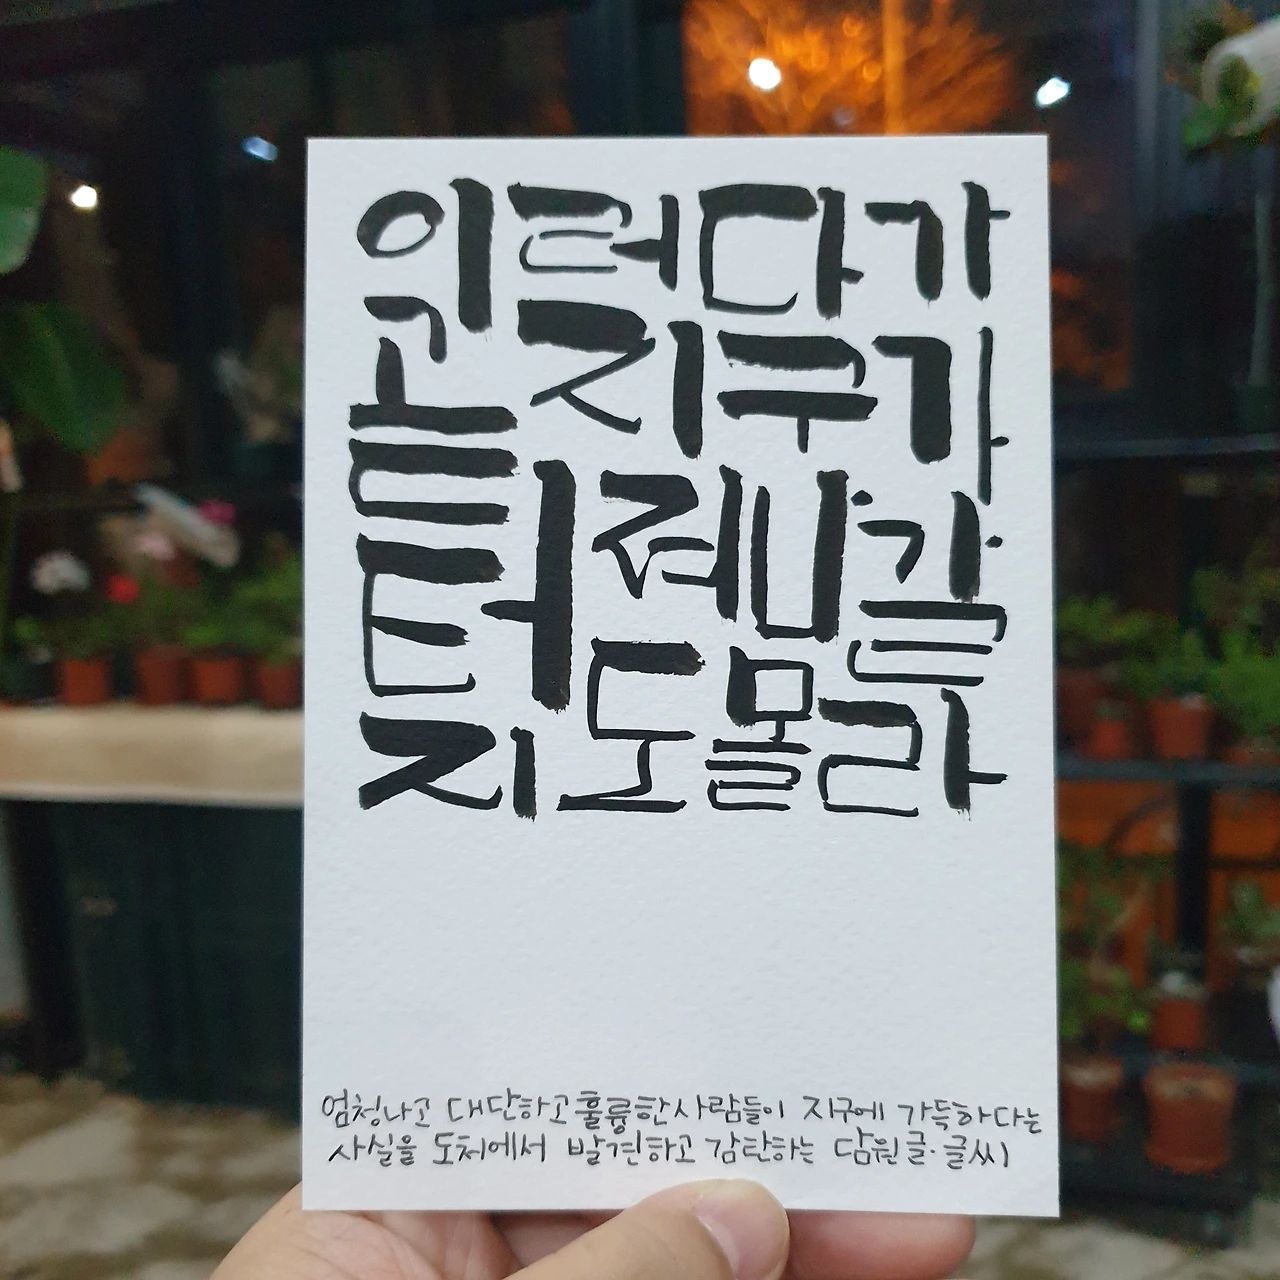 이러다가
곧 지구가
터져나갈
지도 몰라
엄청나고 대단하고 훌륭한 사람들이 지구에 가득하다는
사실을 도처에서 발견하고 감탄하는 담원 글·글씨